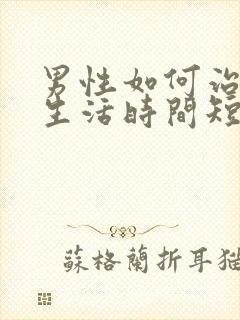 男性如何治
生活時間短
蘇格蘭折耳